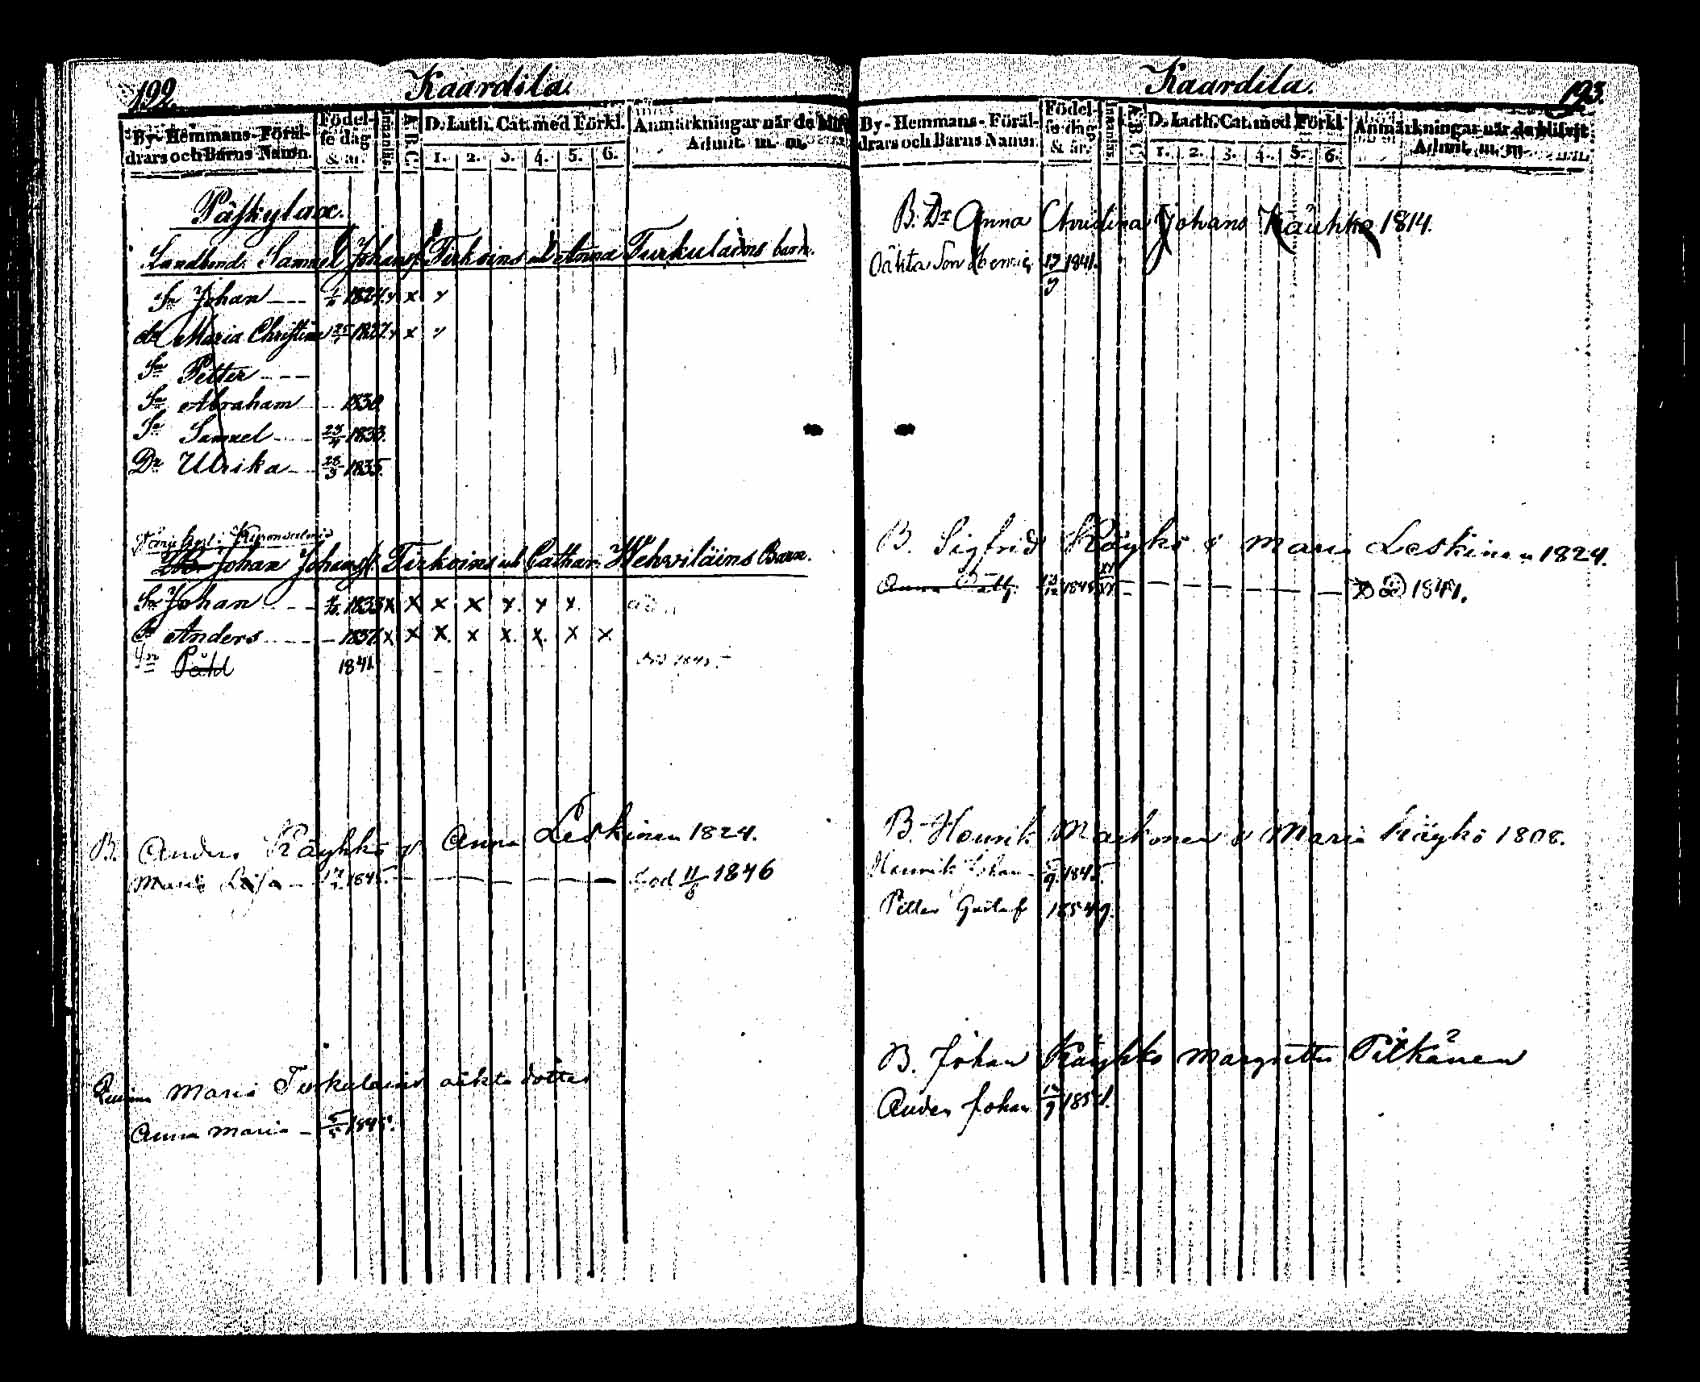 192.
Kaardila.
By- Hemmans- Föräl-
drars och Barns Namn.
Födel-
se dag
& år.
Innanläs.
A. B. C.
D. Luth. Cat. med Förkl.
1. 2. 3. 4. 5. 6.
Anmärkningar när de blifvit
Admit. m. m.
Landbond. Samuel Johansf. Tirkoins och Anna Turkulains barn.
Sn Johan 1824. x x x
dr Maria Christina 1827. x x
Sn Petter
Sn Abraham 1830
Sn Samuel 1833.
Dr Ulrika 28/3 1835.
Johan Johansf. Tirkoins och Cathar. Wehviläins Barn.
Sn Johan 1833 x x x x x x x
Sn Anders 1837 x x x x x x x x
Sn Påhl 1841
B. Anders Käyhkö & Anna Leskinen 1824.
Maria Lisa 1845. död 11/6 1846
Maria Turkulains oäkta dotter
Anna Maria 5/5 1845.
Kaardila.
193.
By- Hemmans- Föräl-
drars och Barns Namn.
Födel-
se dag
& år.
Innanläs.
A. B. C.
D. Luth. Cat. med Förkl.
1. 2. 3. 4. 5. 6.
Anmärkningar när de blifvit
Admit. m. m.
B. Dr Anna Christina Johans Käuhkö 1814.
Oäkta Son Henric 17/9 1841.
B. Sigfrid Käyhkö & Maria Leskinen 1824.
Anna 1848
B. Henrik Markonen & Maria Käyhkö 1808.
Henrik Johan 5/9 1845.
Petter Gustaf 1854
B. Johan Käyhkö Margretta Pitkänen
Anders Johan 1851.